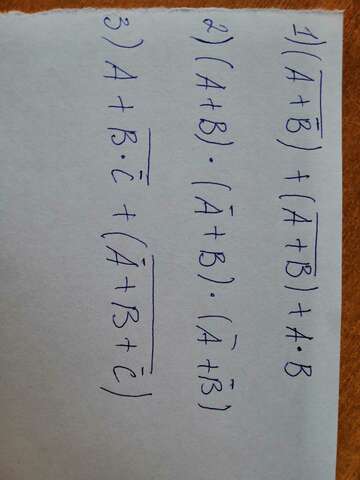 1) (A̅ ̅+̅ ̅B̅̅) + (A̅ ̅+̅ ̅B̅) + A·B
2) (A+B)·(A̅+B)·(A̅+B̅)
3) A + B̅·̅C̅̅ + (A̅̅+̅B̅+̅C̅̅)